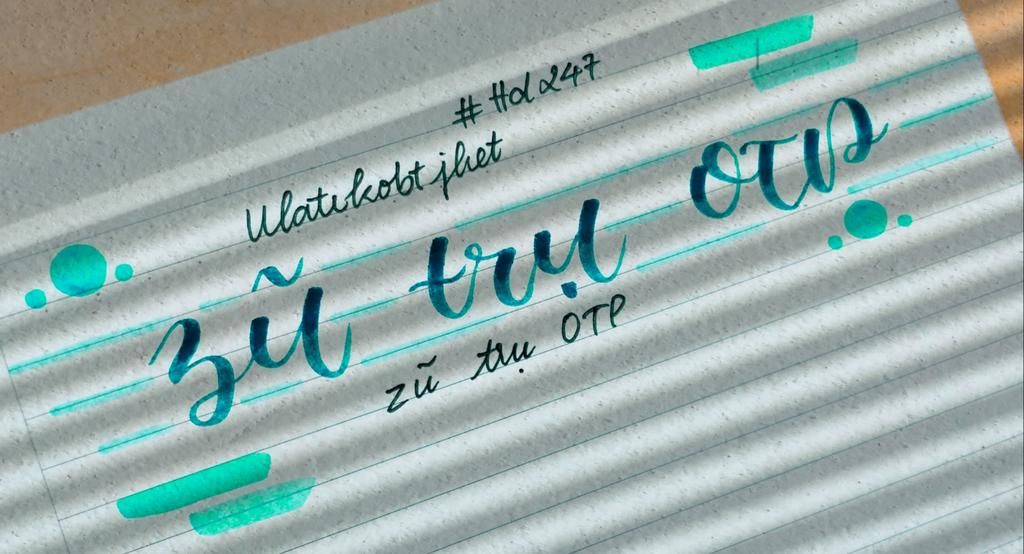 # Hd 247
Ulatikobt jhet
zũ trụ OTP
zũ trụ OTP